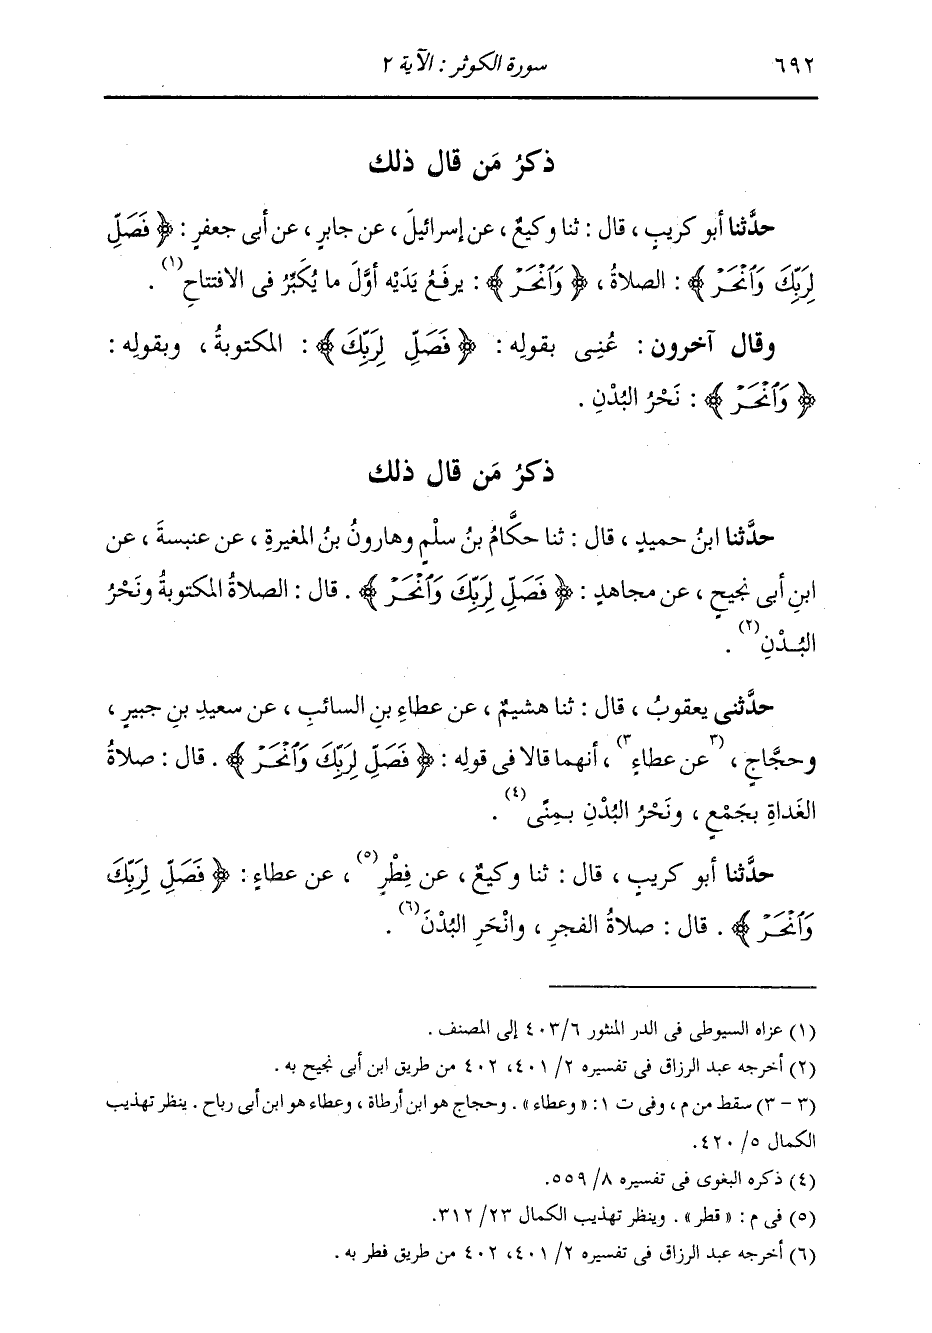 ٦٩٢ سورة الكوثر : الآية ٢
ذكرُ مَن قال ذلك
حدَّثنا أبو كريبٍ ، قال : ثنا وكيعٌ ، عن إسرائيلَ ، عن جابرٍ ، عن أبى جعفرٍ : ﴿ فَصَلِّ
لِرَبِّكَ وَٱنْحَرْ ﴾ : الصلاةُ ، ﴿ وَٱنْحَرْ ﴾ : يرفَعُ يَدَيْه أوَّلَ ما يُكَبِّرُ فى الافتتاحِ(١) .
وقال آخرون : عُنِى بقولِه : ﴿ فَصَلِّ لِرَبِّكَ ﴾ : المكتوبةُ ، وبقولِه :
﴿ وَٱنْحَرْ ﴾ : نَحْرُ البُدْنِ .
ذكرُ مَن قال ذلك
حدَّثنا ابنُ حميدٍ ، قال : ثنا حكَّامُ بنُ سلْمٍ وهارونُ بنُ المغيرةِ ، عن عنبسةَ ، عن
ابنِ أبى نجيحٍ ، عن مجاهدٍ : ﴿ فَصَلِّ لِرَبِّكَ وَٱنْحَرْ ﴾ . قال : الصلاةُ المكتوبةُ ونَحْرُ
البُدْنِ(٢) .
حدَّثنى يعقوبُ ، قال : ثنا هشيمٌ ، عن عطاءِ بنِ السائبِ ، عن سعيدِ بنِ جبيرٍ ،
وحجَّاجٍ ، (٣عن عطاءٍ٣) ، أنهما قالا فى قولِه : ﴿ فَصَلِّ لِرَبِّكَ وَٱنْحَرْ ﴾ . قال : صلاةُ
الغَداةِ بجَمْعٍ ، ونَحْرُ البُدْنِ بـمِنًى(٤) .
حدَّثنا أبو كريبٍ ، قال : ثنا وكيعٌ ، عن فِطْرٍ(٥) ، عن عطاءٍ : ﴿ فَصَلِّ لِرَبِّكَ
وَٱنْحَرْ ﴾ . قال : صلاةُ الفجرِ ، وانْحَرِ البُدْنَ(٦) .
(١) عزاه السيوطى فى الدر المنثور ٤٠٣/٦ إلى المصنف .
(٢) أخرجه عبد الرزاق فى تفسيره ٢/ ٤٠١، ٤٠٢ من طريق ابن أبى نجيح به .
(٣ - ٣) سقط من م ، وفى ت ١: « وعطاء » . وحجاج هو ابن أرطاة ، وعطاء هو ابن أبى رباح . ينظر تهذيب
الكمال ٥/ ٤٢٠.
(٤) ذكره البغوى فى تفسيره ٨/ ٥٥٩.
(٥) فى م : « قطر » . وينظر تهذيب الكمال ٢٣/ ٣١٢.
(٦) أخرجه عبد الرزاق فى تفسيره ٢/ ٤٠١، ٤٠٢ من طريق فطر به .